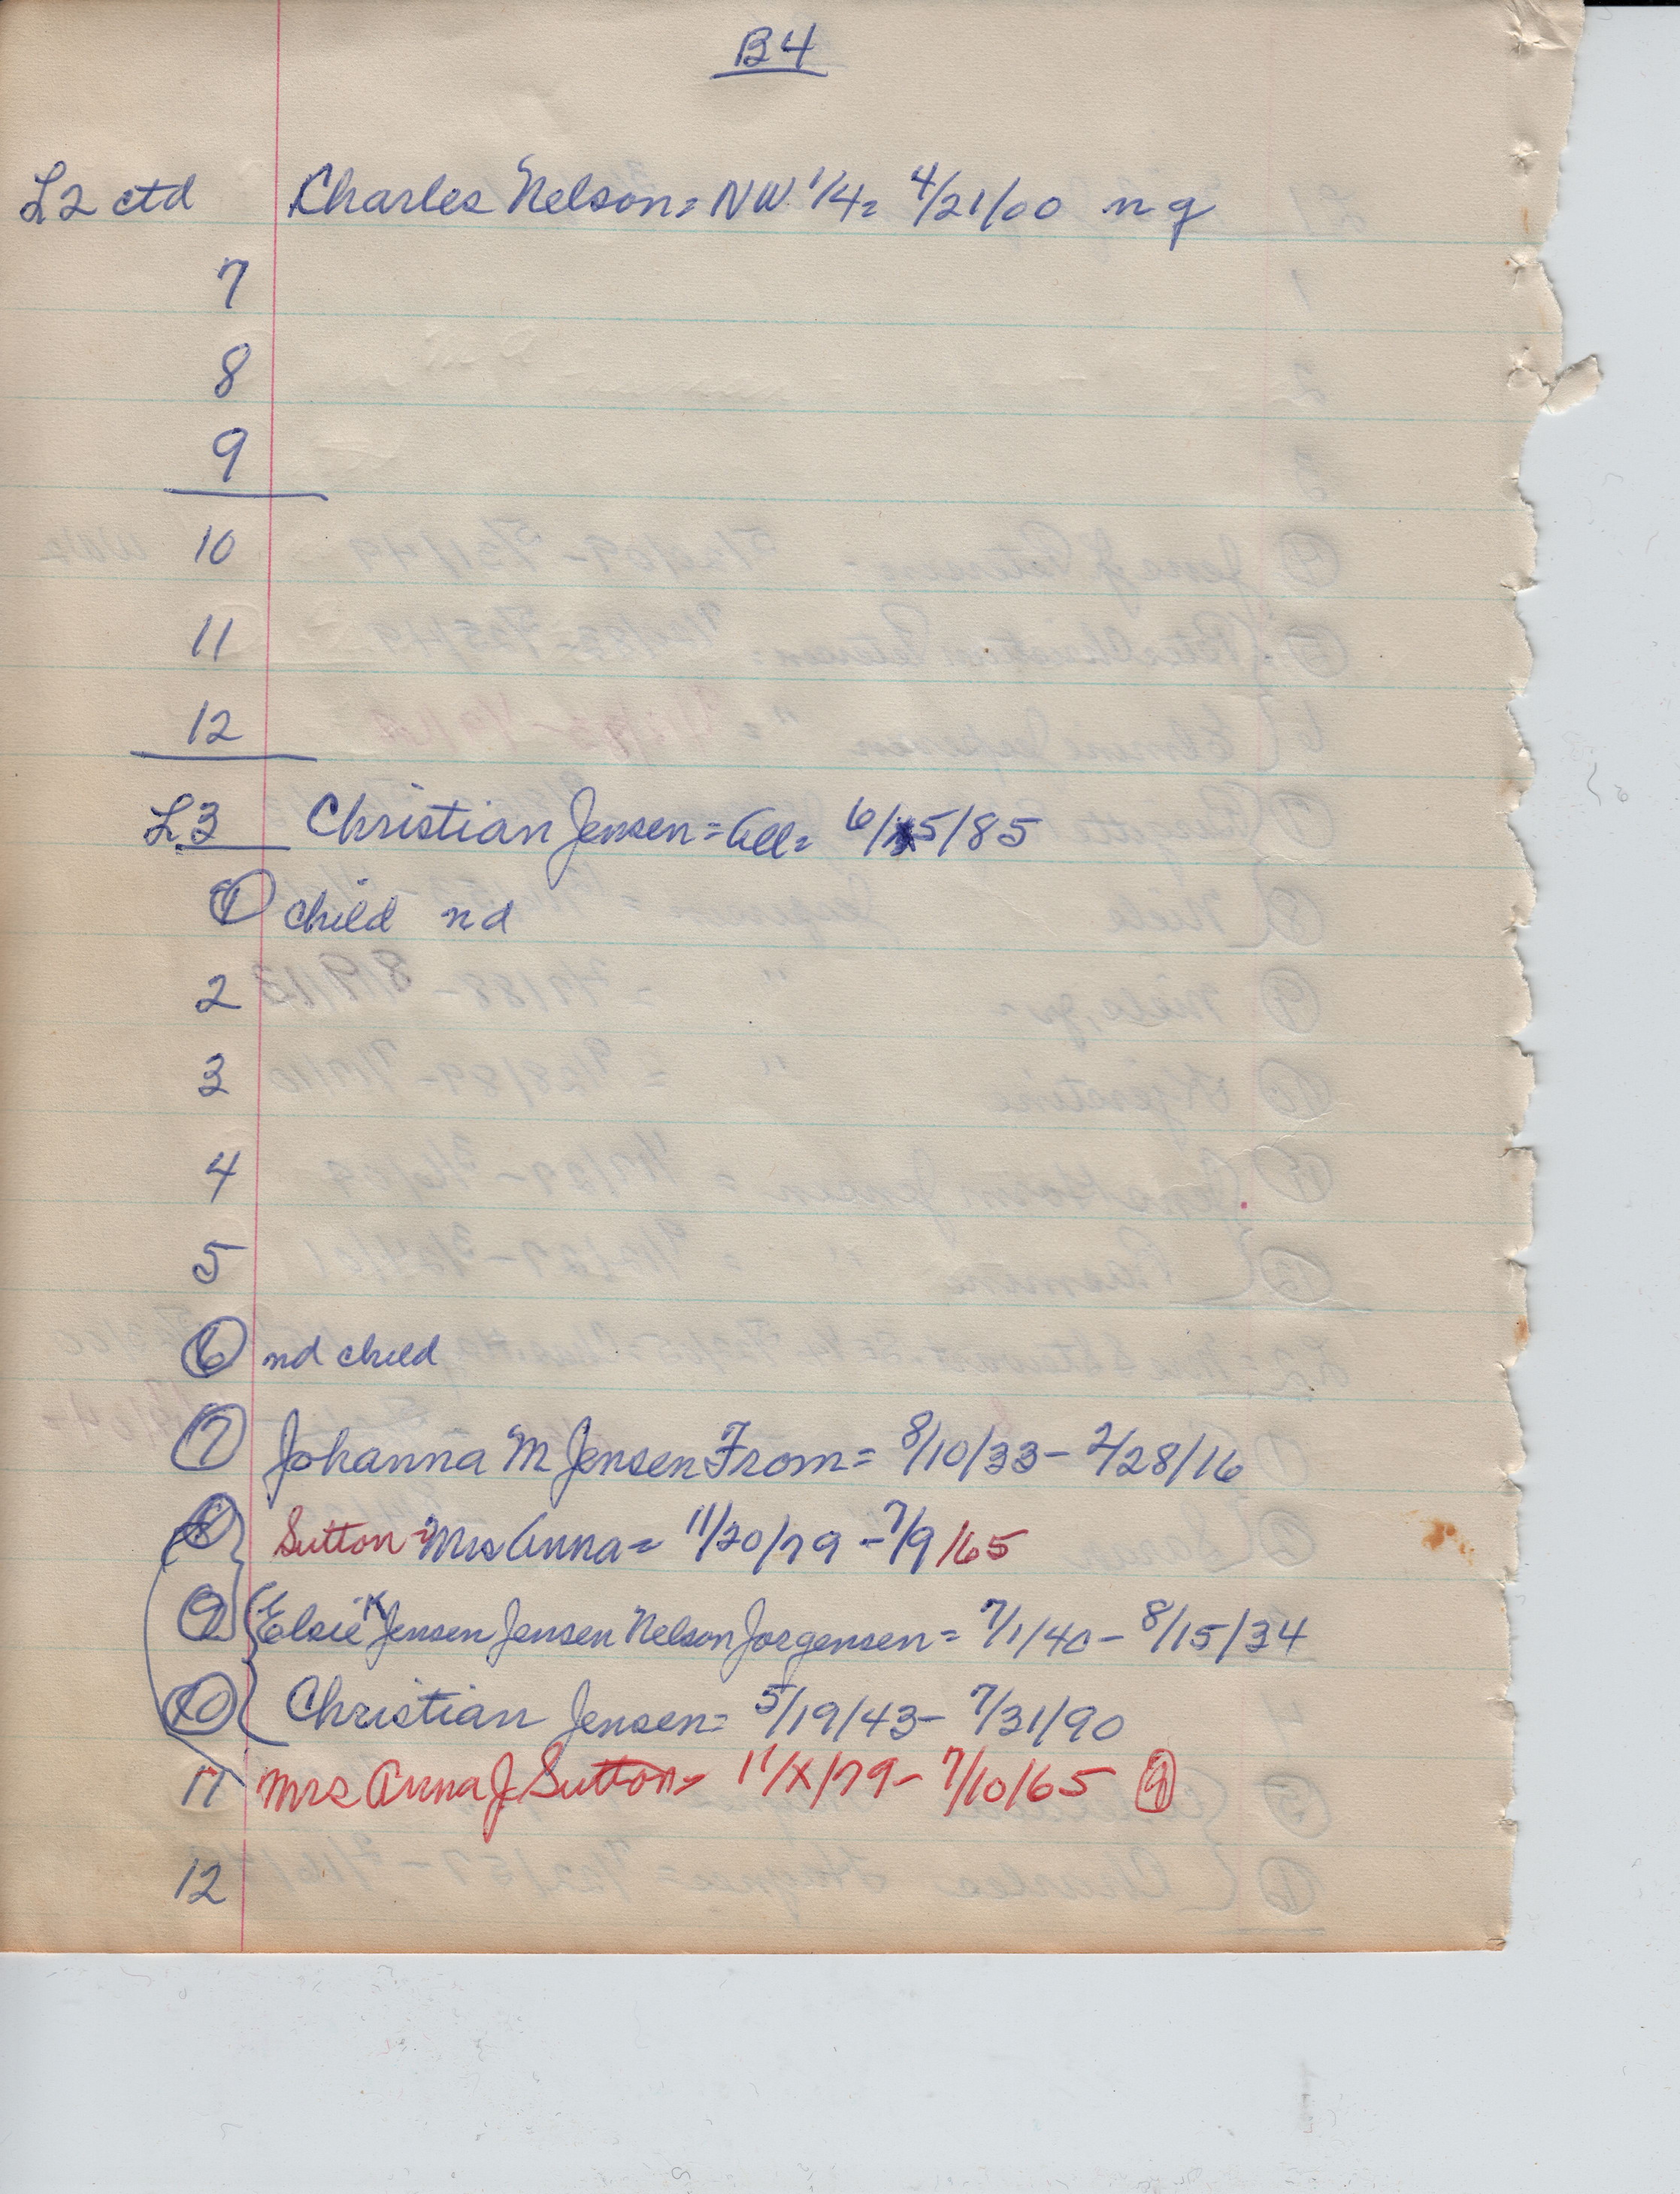 B4
L2 ctd Charles Nelson = NW 1/4 = 4/21/00 n g
7
8
9
10
11
12
L3 Christian Jensen = All = 6/15/85
1 child nd
2
3
4
5
6 nd child
7 Johanna M Jensen From = 8/10/33 - 2/28/16
8 Sutton = Mrs Anna = 11/20/79 - 7/9/65
9 Elsie K Jensen Jensen Nelson Jorgensen = 7/1/40 - 8/15/34
10 Christian Jensen = 5/19/43 - 7/31/90
11 Mrs Anna J Sutton = 11/X/79 - 7/10/65 9
12